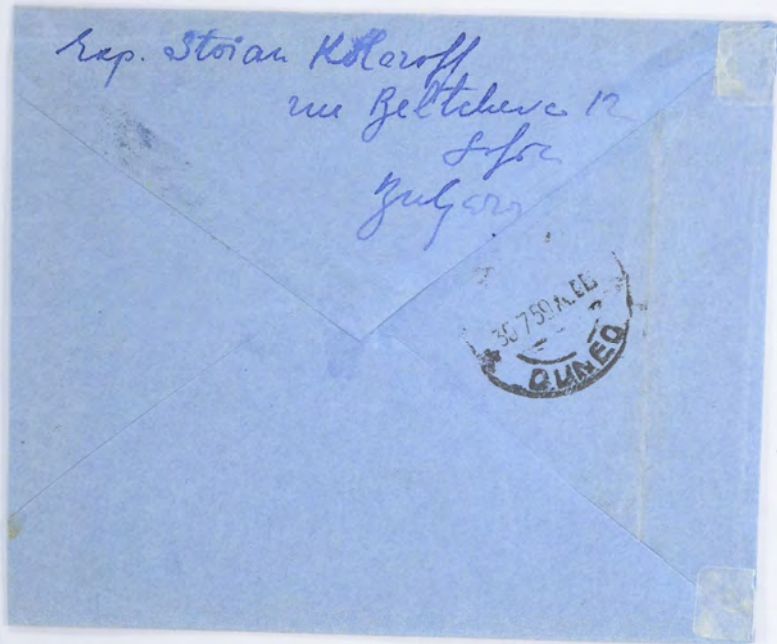 Exp. Stoian Kolaroff
rue Beltcheva 12
Sofia
Bulgaria
30 7 59
CUNEO